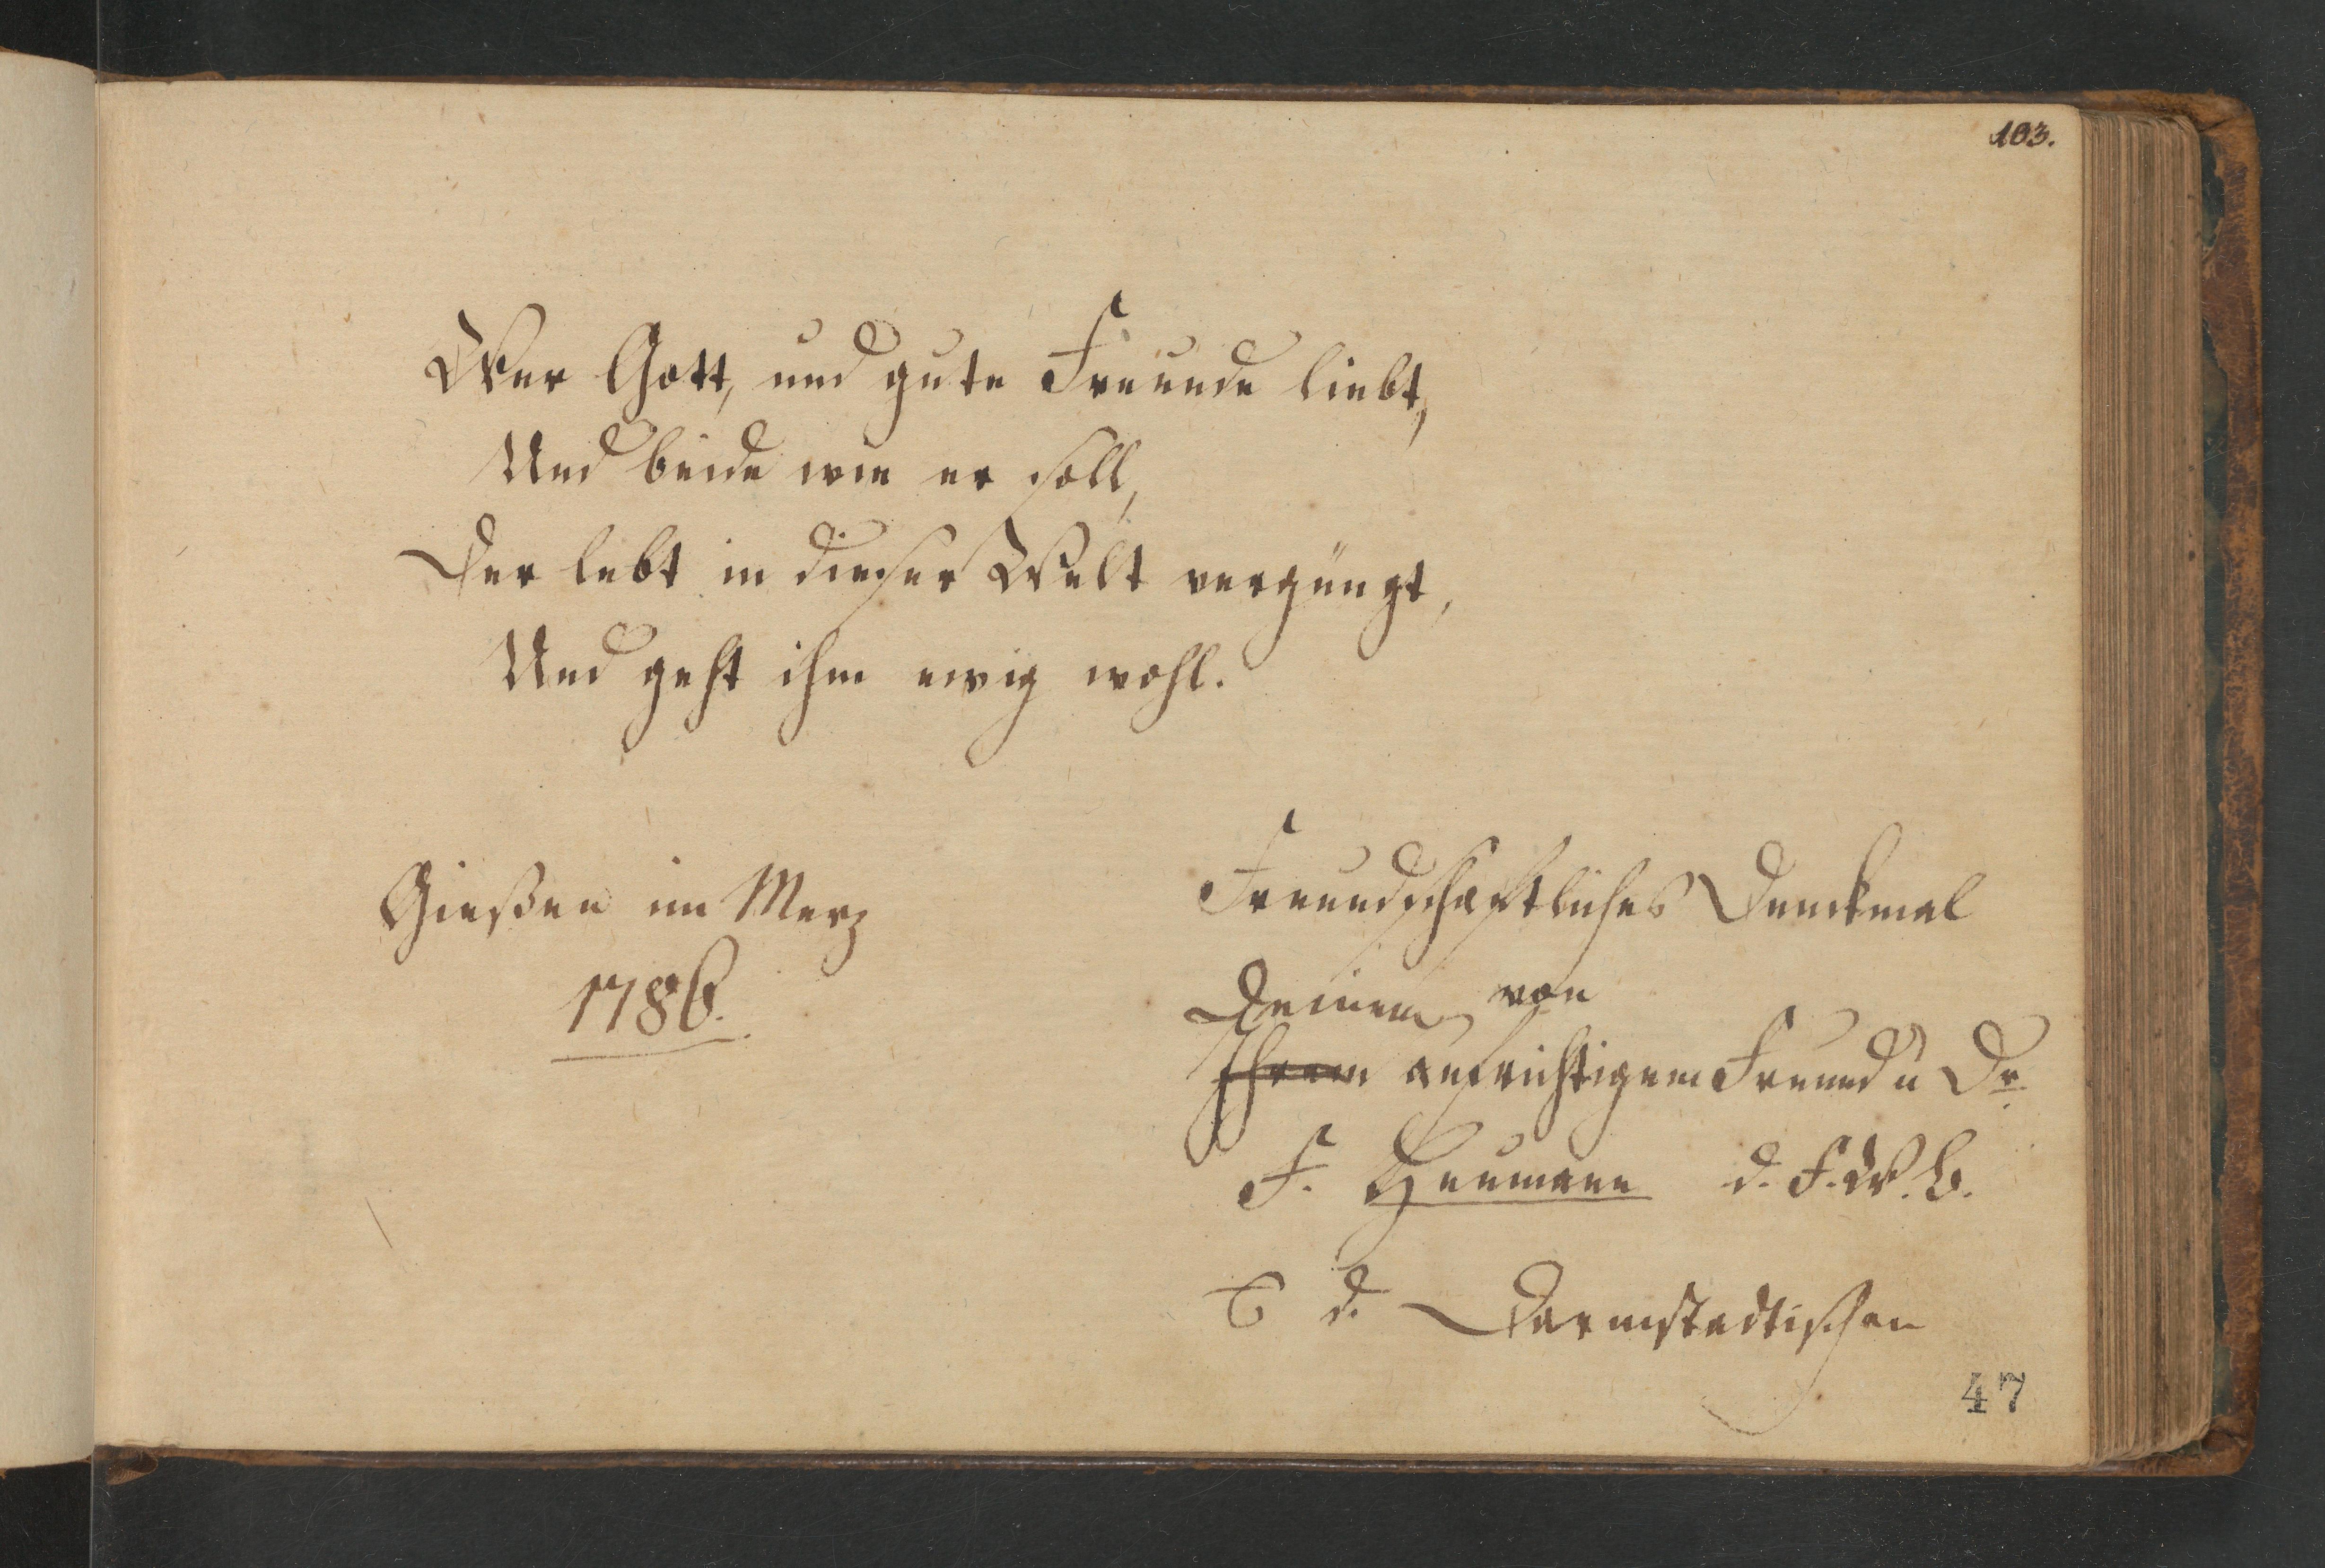 103.
Wer Gott, und gute Freunde liebt,
Und beide wie er soll,
Der lebt in dieser Welt vergüngt,
Und geht ihm ewig wohl.
Giesßen im Merz
1786.
Freundschaftliches Denckmal
Deinem von
Ihrem aufrichtigem Freund u Dr
F. Heumann d. F. W. B.
d. Darmstadtischen
47